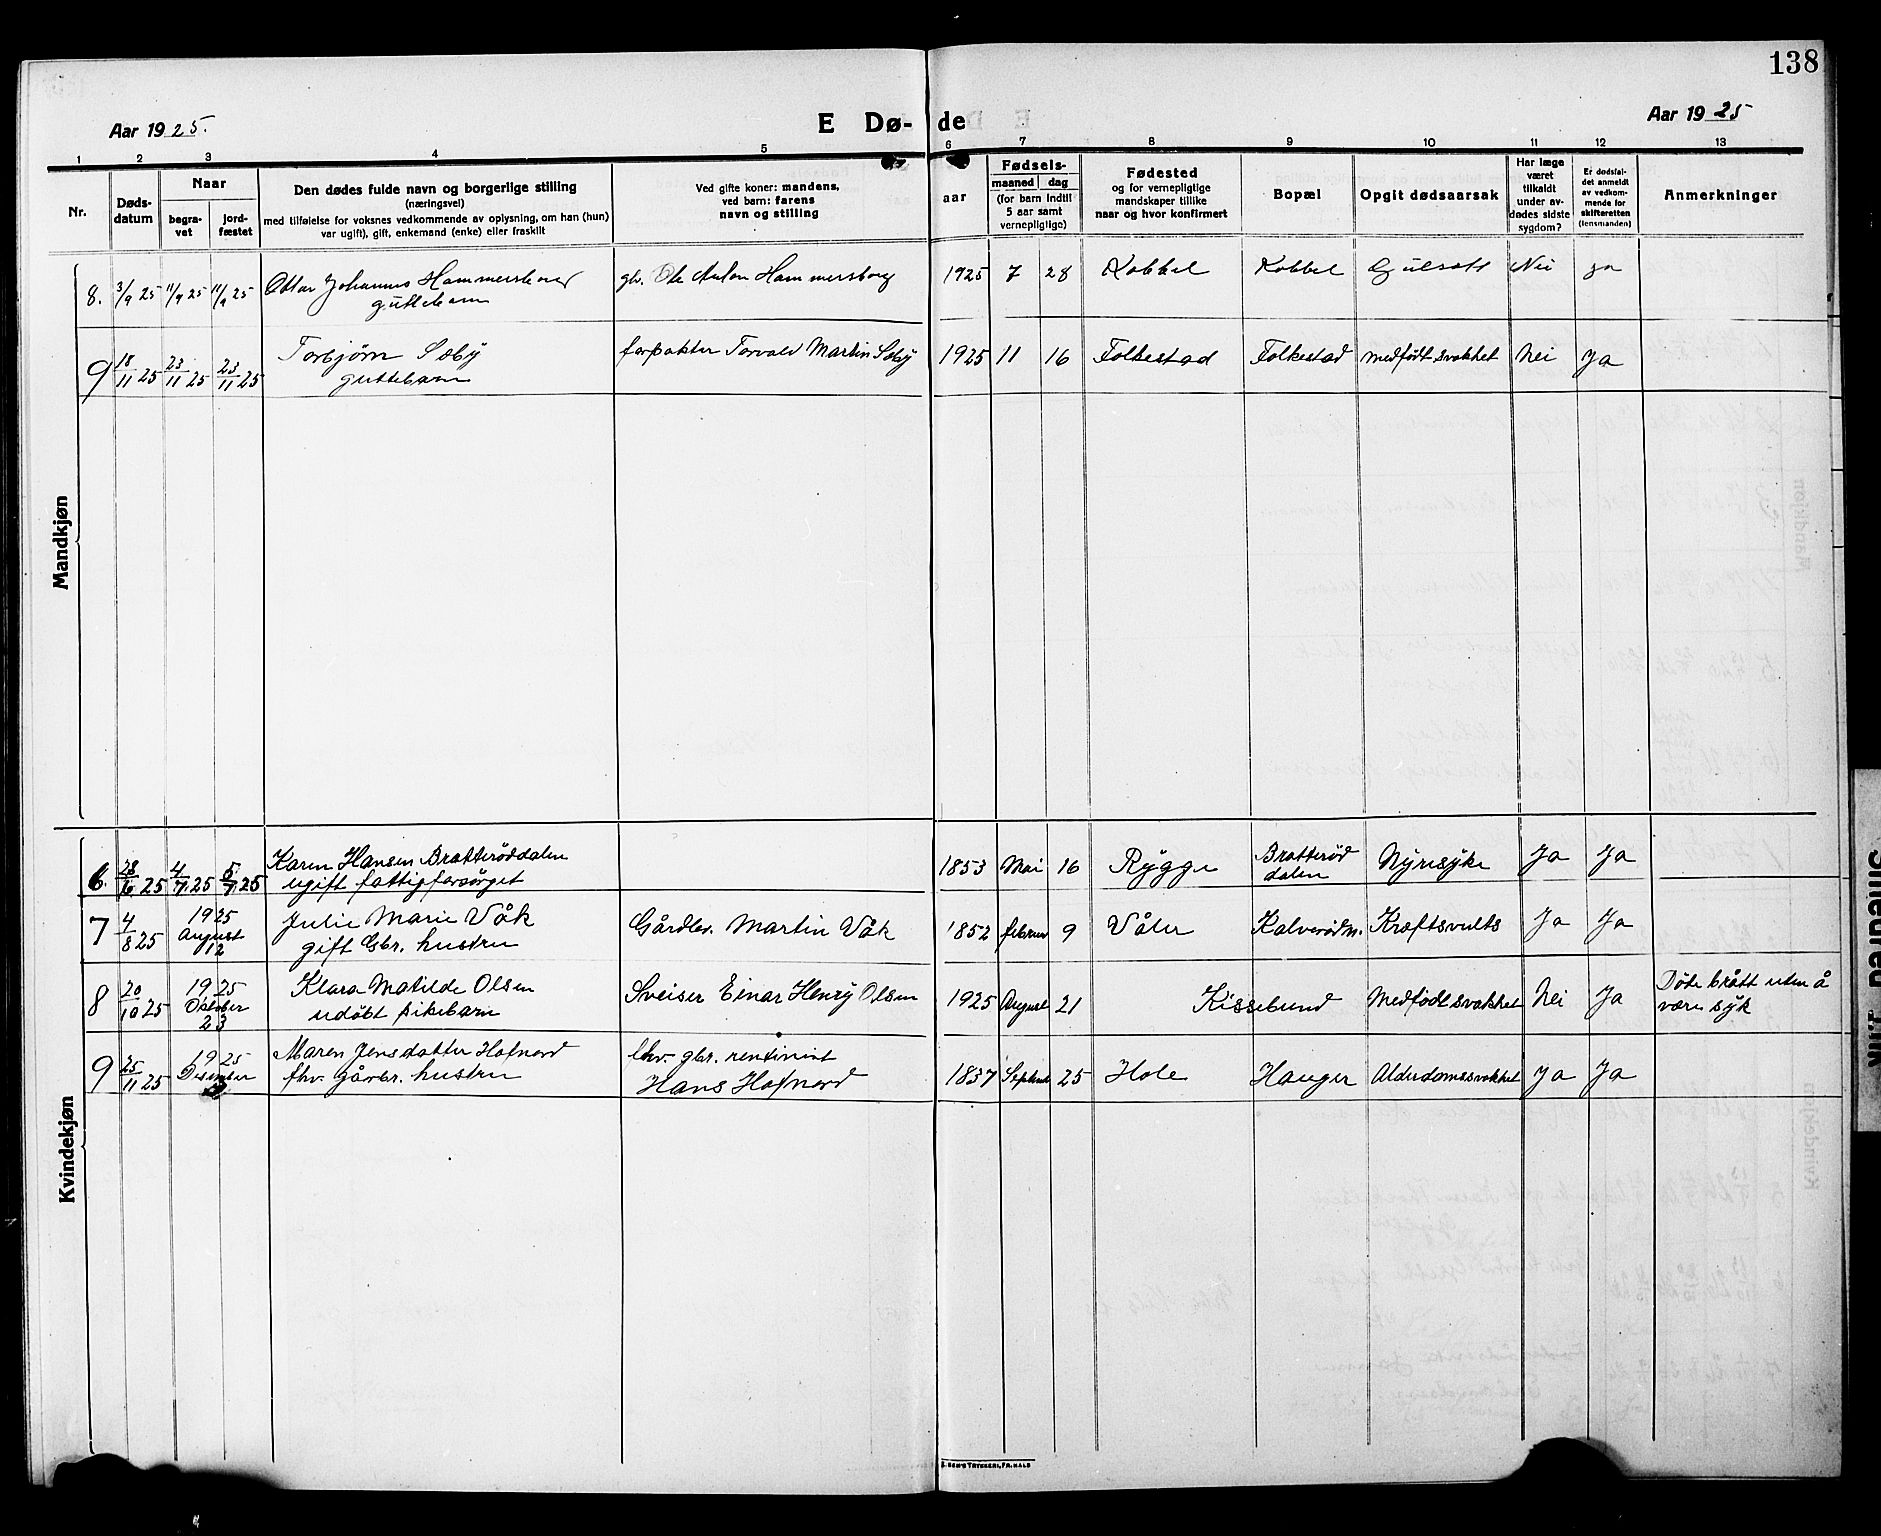 138
Aar 1925.
E Dø- de
Aar 1925
1 2 3 4 5 6 7 8 9 10 11 12 13
Nr.
Døds-
datum
Naar
begra-
vet
jord-
fæstet
Den dødes fulde navn og borgerlige stilling
(næringsvei)
med tilføielse for voksnes vedkommende av oplysning, om han (hun)
var ugift), gift, enkemand (enke) eller fraskilt
Ved gifte koner: mandens,
ved barn: farens
navn og stilling
aar
Fødsels-
maaned dag
(for barn indtil
5 aar samt
vernepligtige)
Fødested
og for vernepligtige
mandskaper tillike
naar og hvor konfirmert
Bopæl
Opgit dødsaarsak
Har læge
været
tilkaldt
under av-
dødes sidste
sygdom?
Er dødsfal-
det anmeldt
av vedkom-
mende for
skifteretten
(lensmanden)
Anmerkninger
Mandkjøn
8. 3/9 25 11/9 25 11/9 25 Ottar Johannes Hammersborg gbr. Ole Anton Hammersborg 1925 7 28 Kobbel Kobbel Gulsott Nei ja
guttebarn
9 18/11 25 23/11 25 23/11 25 Torbjørn Sæby forpakter Torvald Martin Sæby 1925 11 16 Folkestad Folkestad medfødt svakhet Nei Ja
guttebarn
Kvindekjøn
6. 28/6 25 4/7 25 5/7 25 Karen Hansen Bratterøddalen 1853 Mai 16 Rygge Bratterød Nyresyke Ja Ja
ugift fattigforsørget dalen
7 4/8 25 1925 August 12 Julie Marie Våk Gårdbr. Martin Våk 1852 februar 9 Våler Kalverødm. Kræftsvulst Ja Ja
gift Gbr. hustru
8 20/10 25 1925 Oktober 23 Klara Matilde Olsen Sveiser Einar Henry Olsen 1925 August 21 Kissebund Medfødt svakhet Nei Ja Døde brått uten å
udøbt pikebarn være syk
9 25/11 25 1925 Desember Maren Jensdatter Hofnord fhv. gbr. rentinist 1837 Septemb 25 Hole Hauger Alderdomssvakhet Ja Ja
fhv. gårbr. hustru Hans Hofnord